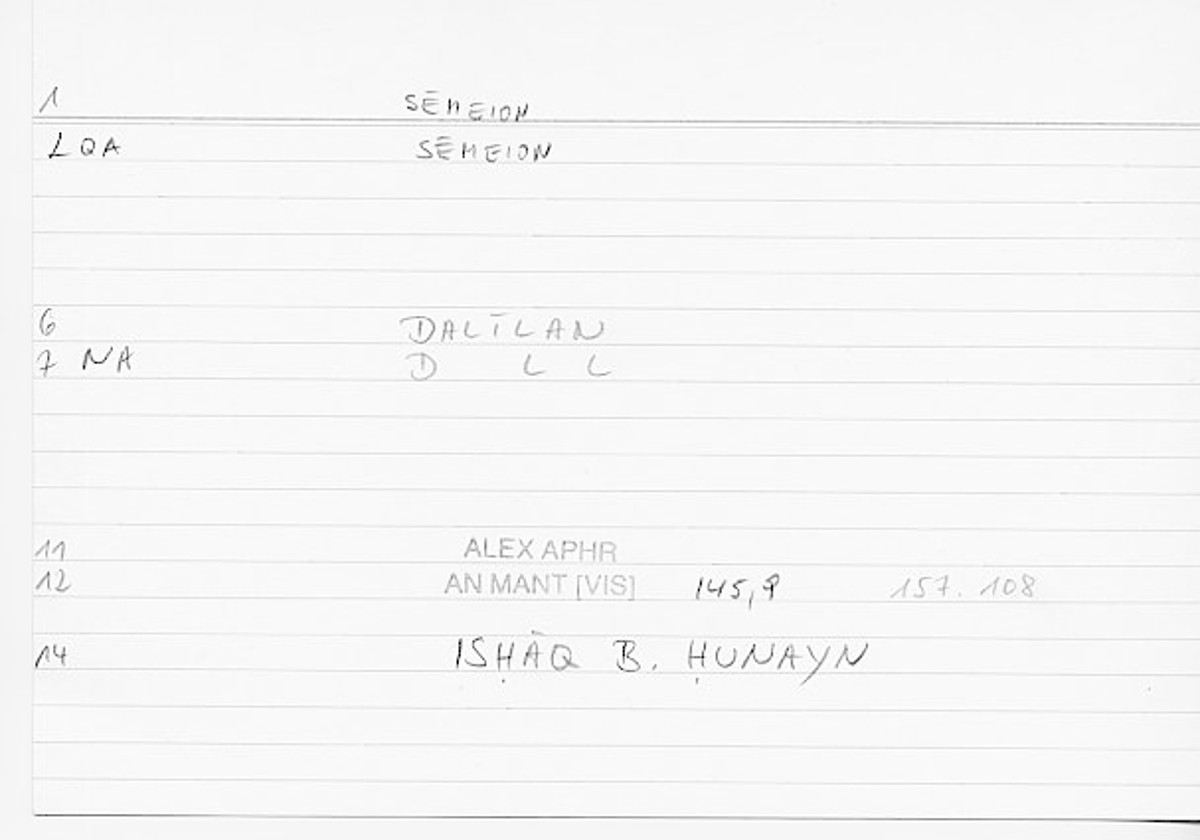 1 SĒMEION
LQA SĒMEION
6 DALĪLAN
7 NA D L L
11 ALEX APHR
12 AN MANT [VIS] 145,9 157.108
14 ISḤĀQ B. ḤUNAYN